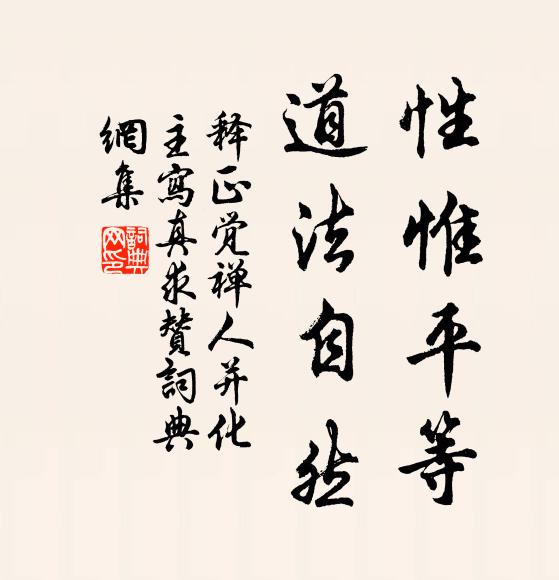 性惟平等
道法自然
释正觉禅人并化
主寫真求赞詞典
網集
詞典網印